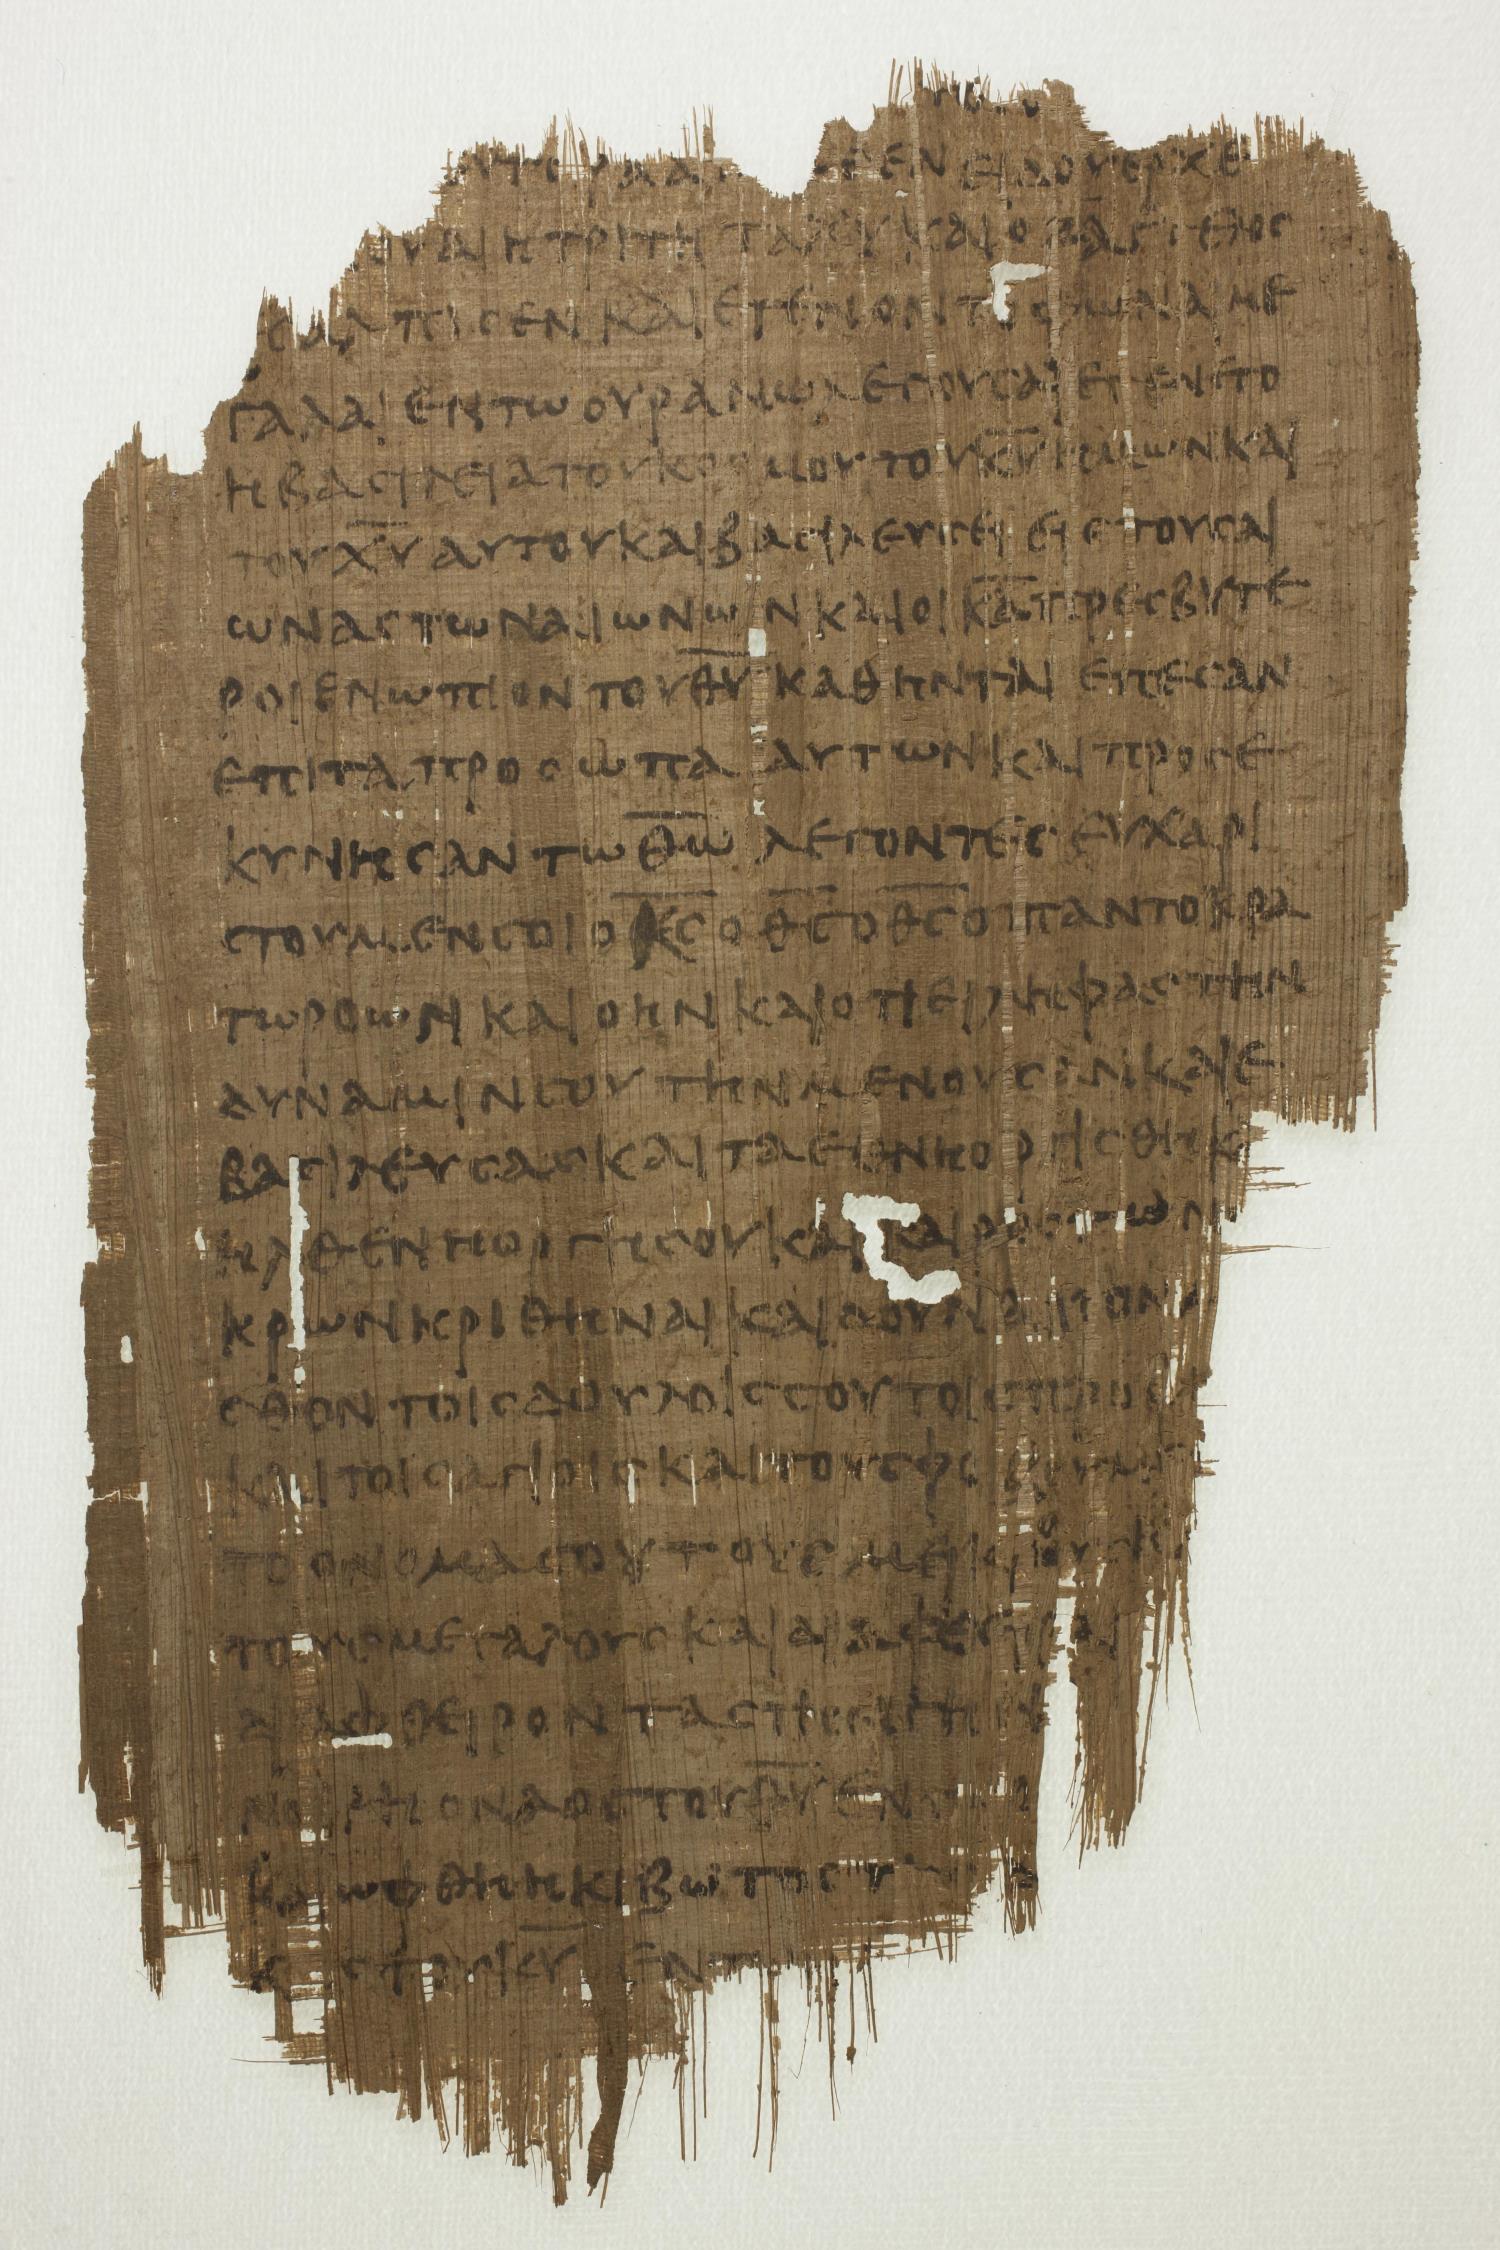 ουαι η τριτη ταχυ και ο ζ̅ αγγελος
εσαλπισεν και εγενοντο φωναι με
γαλαι εν τω ουρανω λεγουσαι εγενετο
η βασιλεια του κοσμου του κ̅υ̅ ημων και
του χ̅υ̅ αυτου και βασιλευσει εις τους αι
ωνας των αιωνων και οι κ̅δ̅ πρεσβυτε
ροι ενωπιον του θ̅υ̅ καθηνται επεσαν
επι τα προσωπα αυτων και προσε
κυνησαν τω θ̅ω̅ λεγοντες ευχαρι
στουμεν σοι ο κ̅ς̅ ο θ̅ς̅ ο θ̅ς̅ ο παντοκρα
τωρ ο ων και ο ην και οτι ειληφας την
δυναμιν σου την μενουσαν και ε
βασιλευσας και τα εθνη οργισθη κ
ηλθεν η οργη σου και και
κρων κριθηναι και δουναι τον μι
σθον τοις δουλοις σου τοις
και τοις αγιοις και τους φοβουμε
το ονομα σου τους μεικρους
τους μεγαλους και διαφθειραι
διαφθειροντας την γην
νοιγη ο ναος του θ̅υ̅ εν
και ωφθη η κιβωτος
κης του κ̅υ̅ εν